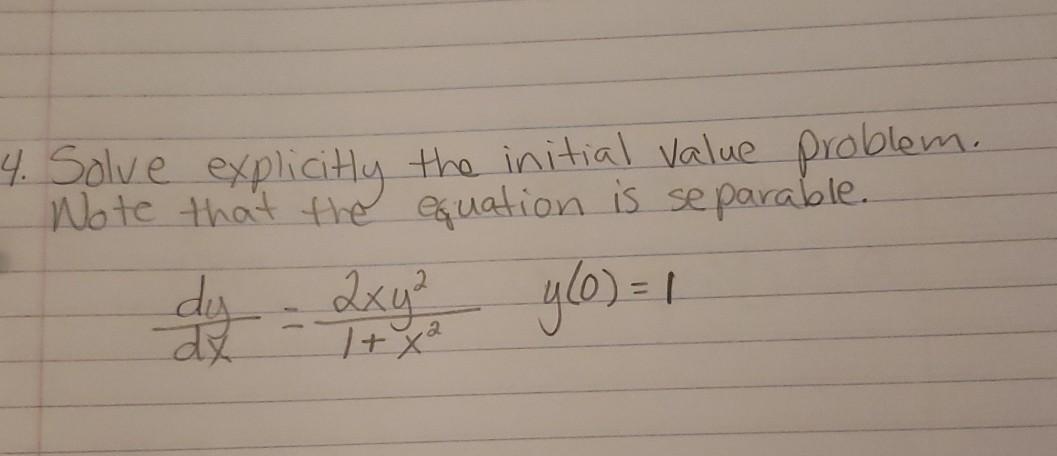 4. Solve explicitly the initial value problem.
Note that the equation is separable.
dy/dx = 2xy²/1+x² y(0)=1